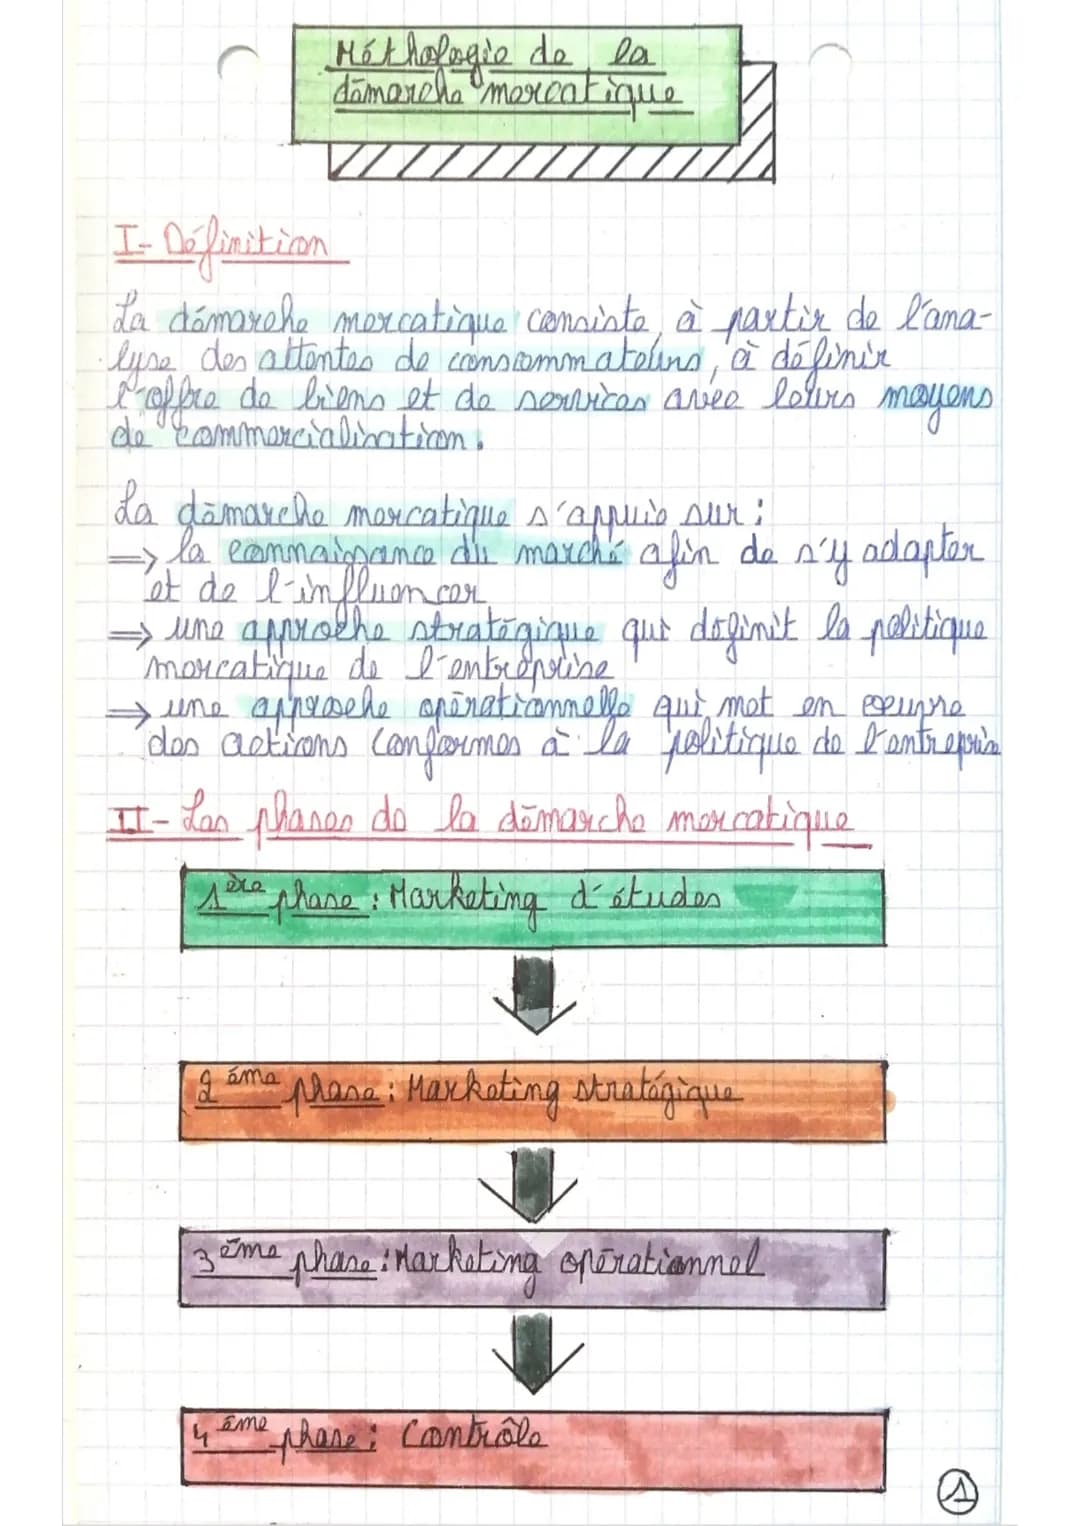 Méthologie de la
démarche mercatique
I- Définition
La démarche mercatique consiste, à partir de l'ana-
lyse des attentes de consommateurs, à définir
l'offre de biens et de services avec leurs moyens
de commercialisation.
La démarche mercatique s'appuie sur :
=> la connaissance du marché afin de s'y adapter
et de l'influencer
=> une approche stratégique qui définit la politique
mercatique de l'entreprise
=> une approche opérationnelle qui met en oeuvre
des actions conformes à la politique de l'entreprise
II- Les phases de la démarche mercatique
1ère phase : Marketing d'études
2ème phase : Marketing stratégique
3ème phase : Marketing opérationnel
4ème phase : Contrôle
1